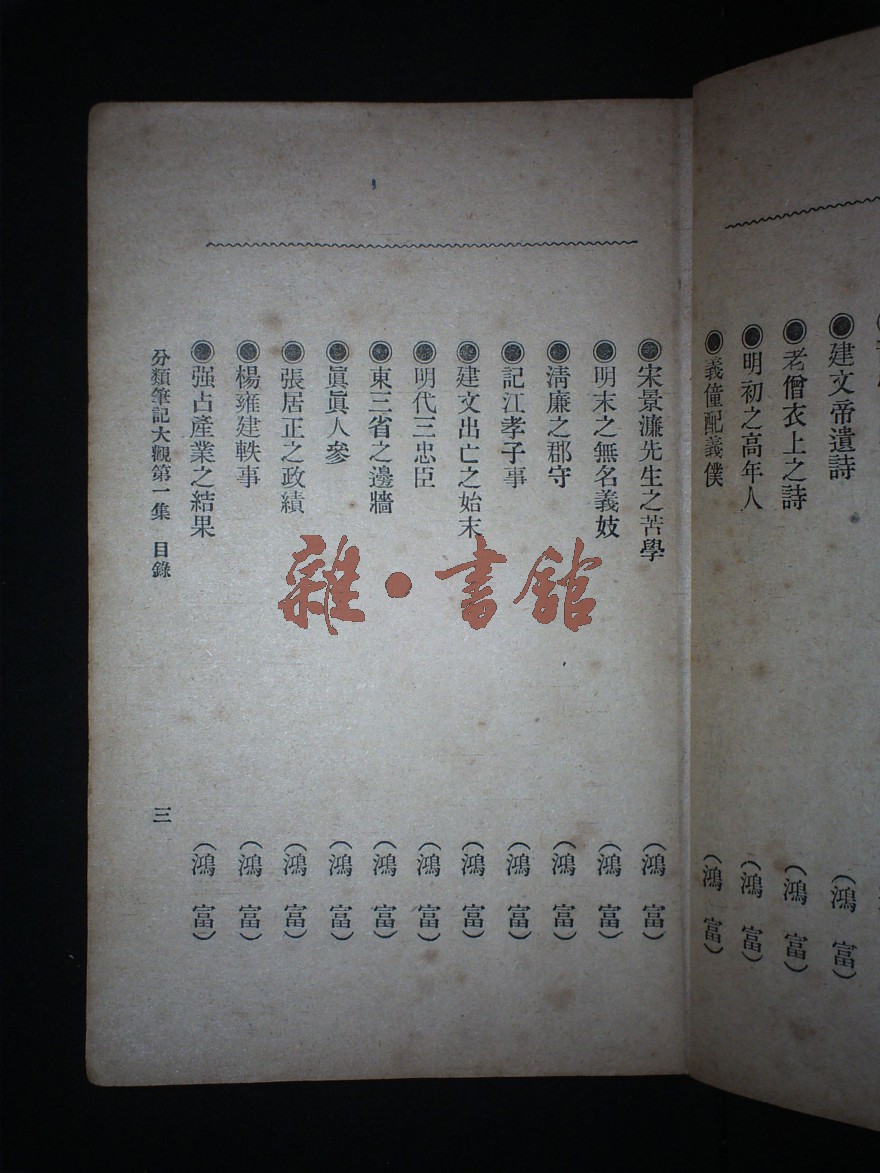 建文帝遺詩 (鴻富)
老僧衣上之詩 (鴻富)
明初之高年人 (鴻富)
義僮配義僕 (鴻富)
宋景濂先生之苦學 (鴻富)
明末之無名義妓 (鴻富)
淸廉之郡守 (鴻富)
記江孝子事 (鴻富)
建文出亡之始末 (鴻富)
明代三忠臣 (鴻富)
東三省之邊牆 (鴻富)
眞眞人參 (鴻富)
張居正之政績 (鴻富)
楊雍建軼事 (鴻富)
强占產業之結果 (鴻富)
分類筆記大觀第一集 目錄 三
雜·書館